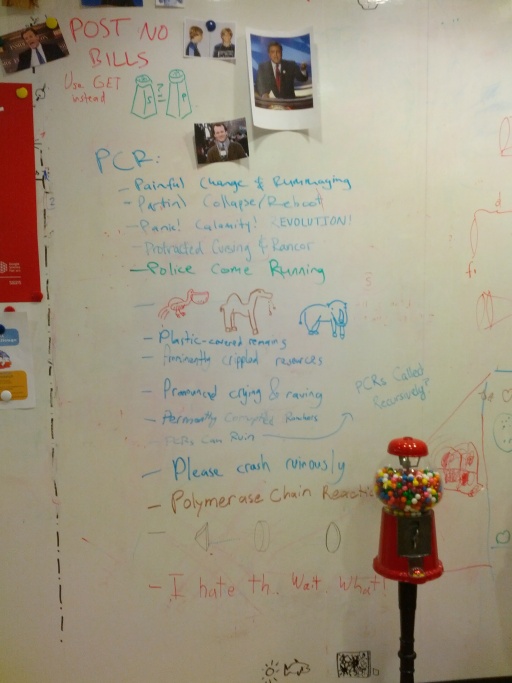 POST NO
BILLS
Use GET
instead
S ? = P
PCR:
- Painful Change & Rummaging
- Partial Collapse/Reboot
- Panic! Calamity! REVOLUTION!
- Protracted Cursing & Rancor
- Police Come Running
- Plastic-covered remains
- crippled resources
- Pronounced crying & raving
- Permanently Corrupted Numbers
- PCRs Can Ruin
PCRs Called
Recursively?
- Please crash ruinously
- Polymerase Chain Reacti
- I hate th. Wait. What!
d